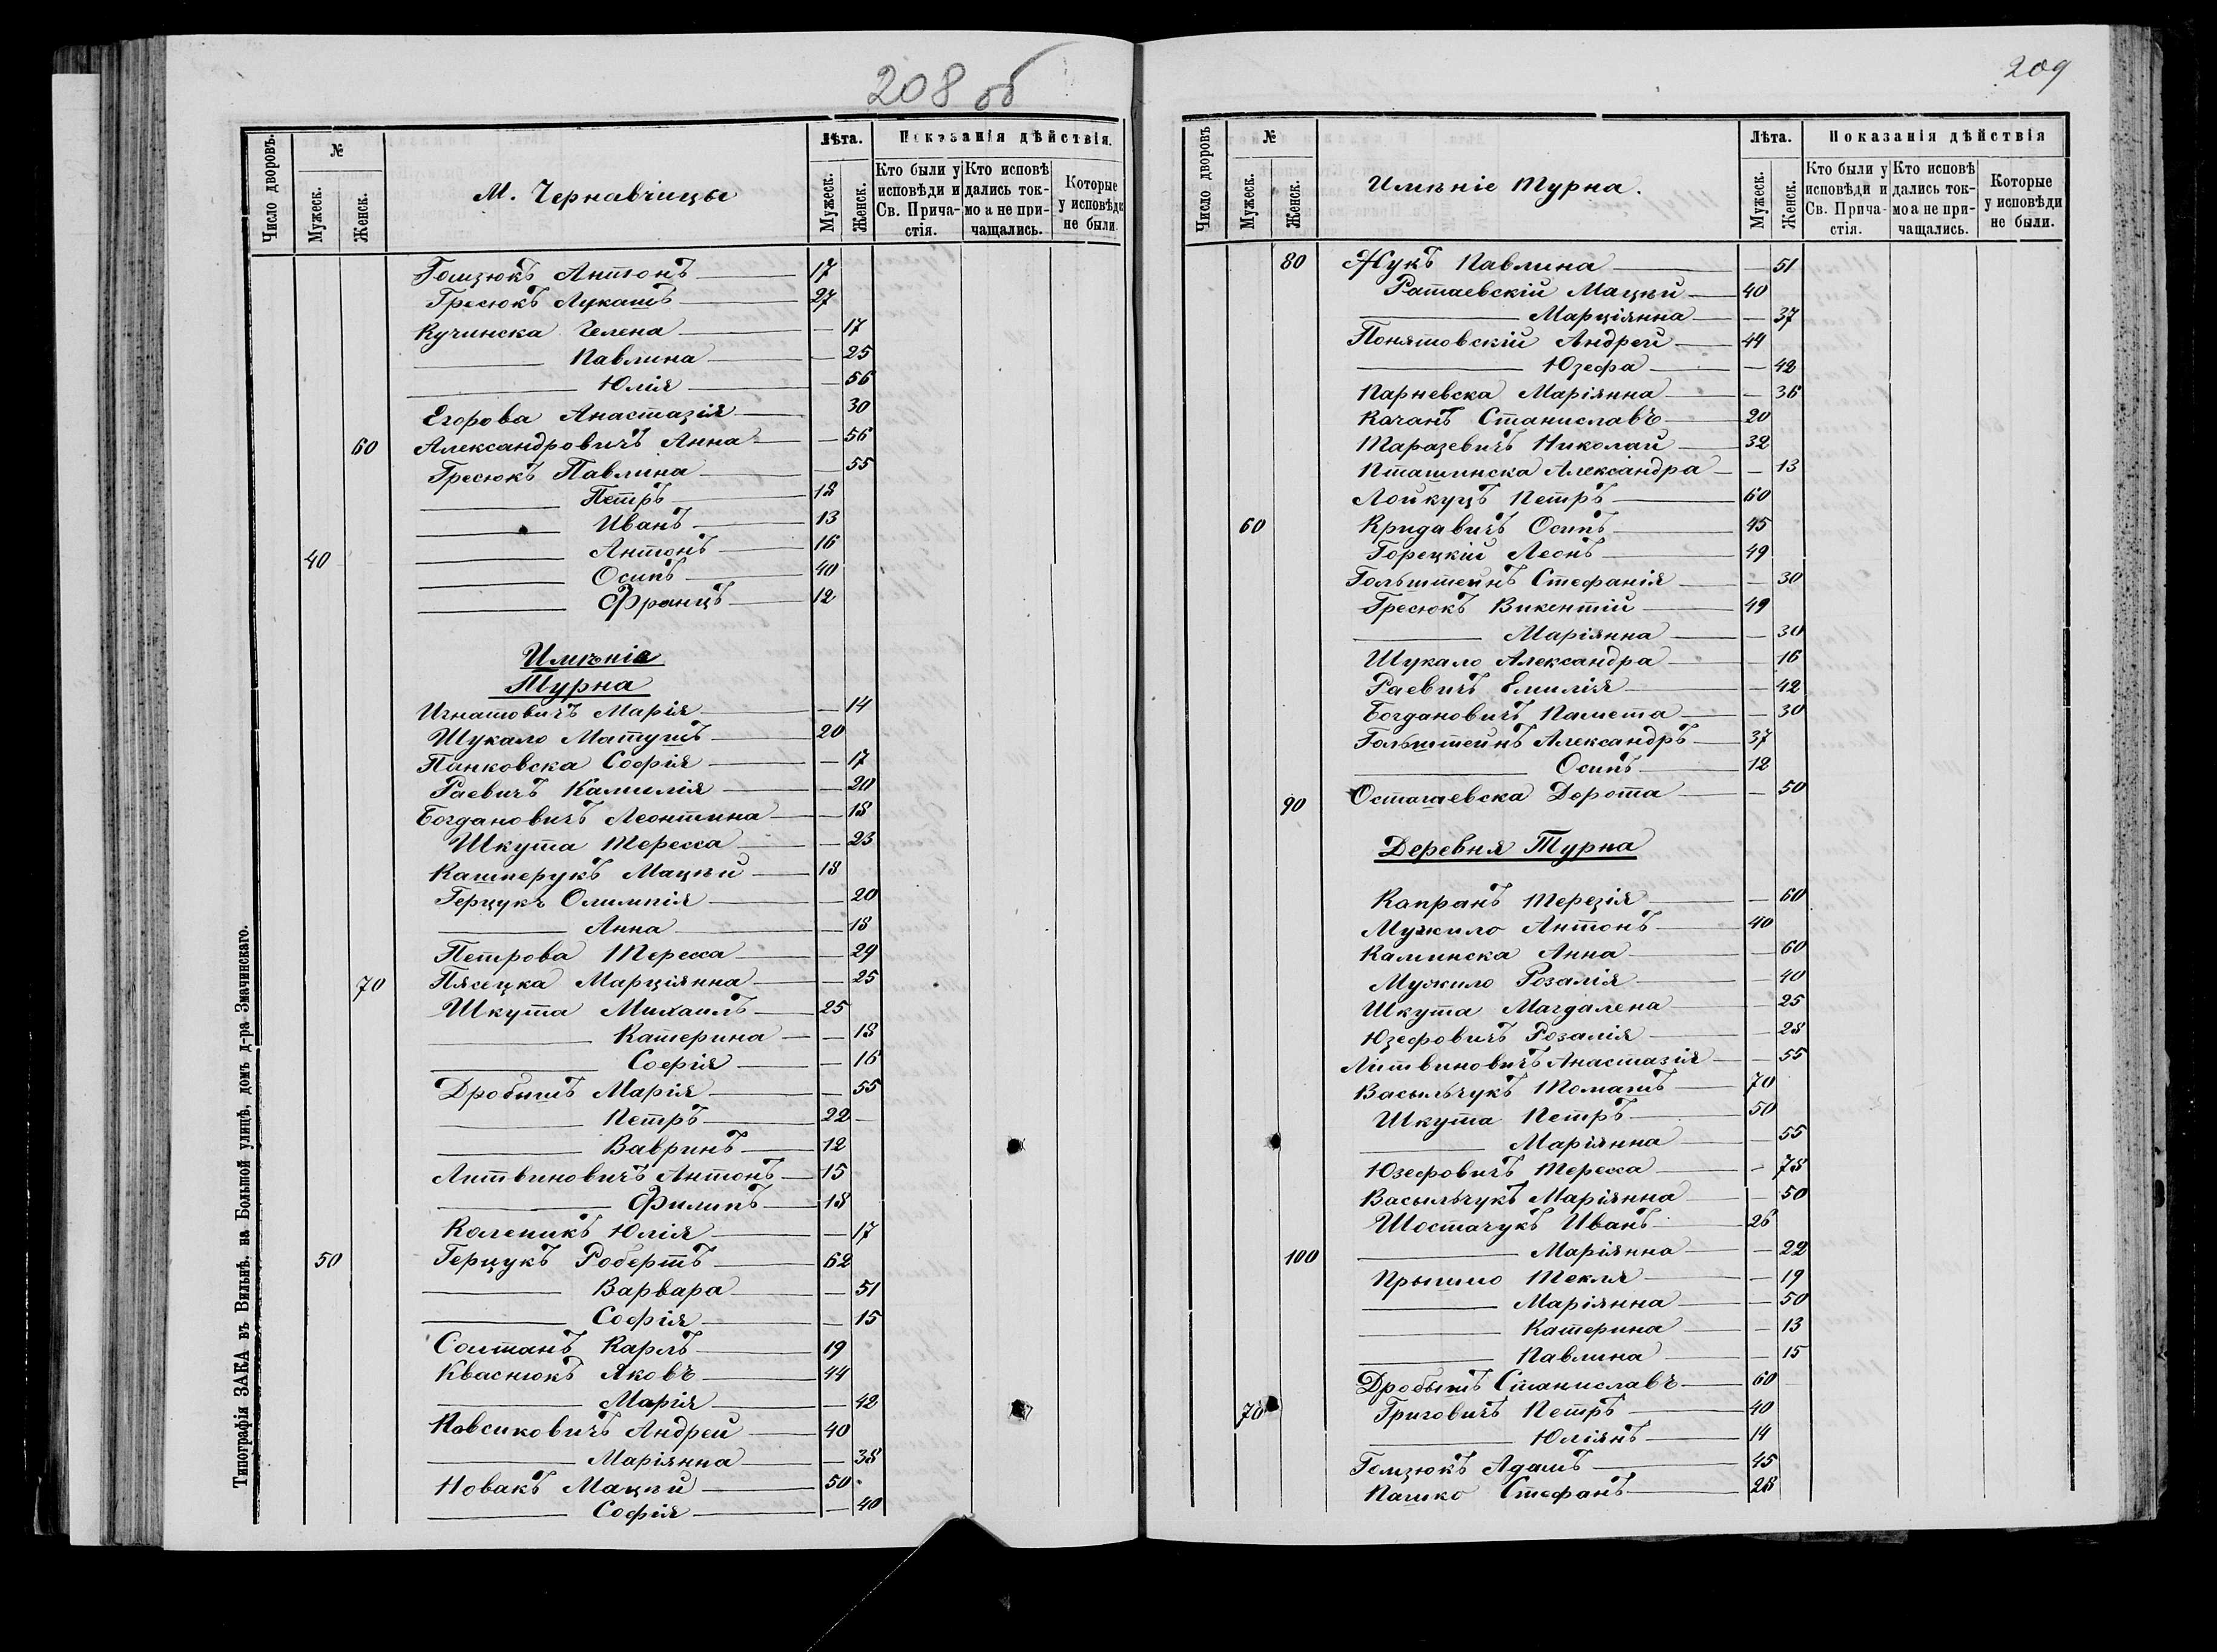 208 об
Число дворовъ.
№
Мужеск.
Женск.
М. Чернавчицы
Лѣта.
Мужеск.
Женск.
Показанія дѣйствія.
Кто были у исповѣди и Св. Причастія.
Кто исповѣдались токмо а не причащались.
Которые у исповѣди не были.
Гомзюкъ Антонъ 17
Гресюкъ Лукашъ 27
Кучинска Гелена — 17
Павлина — 25
Юлія — 56
Егорова Анастазія 30
60 Александровичъ Анна — 56
Гресюкъ Павлина — 55
Петръ 18
Иванъ 13
Антонъ 16
40 Осипъ 40
Францъ 12
Имѣніе
Турна
Игнатовичъ Марія — 14
Шукало Матушъ 20
Панковска Софія — 17
Раевичъ Камилія — 20
Богдановичъ Леонтина — 18
Шкута Тересса — 23
Кашперукъ Мацѣй 18
Герцукъ Олимпія — 20
Анна — 18
Петрова Тересса — 29
70 Пясецка Марціянна — 25
Шкута Михаилъ 25
Катерина — 18
Софія — 16
Дробышъ Марія — 55
Петръ 22
Вавринъ 12
Литвиновичъ Антонъ 15
Филипъ 18
Колепикъ Юлія — 17
50 Герцукъ Робертъ 62
Варвара — 51
Софія — 15
Солтанъ Карлъ 19
Кваснюкъ Яковъ 44
Марія — 42
Повсиковичъ Андрей 40
Маріянна — 38
Новакъ Мацѣй 50
Софія — 40
Типографія ЗАКА въ Вильнѣ, на Большой улицѣ, домъ д-ра Змачинскаго.
209
Число дворовъ
№
Мужеск.
Женск.
Имѣніе Турна.
Лѣта.
Мужеск.
Женск.
Показанія дѣйствія
Кто были у исповѣди и Св. Причастія.
Кто исповѣдались токмо а не причащались.
Которые у исповѣди не были.
80 Жукъ Павлина — 51
Ратаевскій Мацѣй 40
Марціянна — 37
Понятовскій Андрей 44
Юзефа — 42
Парневска Маріянна — 36
Качанъ Станиславъ 20
Таразевичъ Николай 32
Пташинска Александра — 13
Лойкуцъ Петръ 60
60 Кридавичъ Осипъ 45
Горецкій Леонъ 49
Гольштейнъ Стефанія — 30
Гресюкъ Викентій 49
Маріянна — 30
Шукало Александра — 16
Раевичъ Емилія — 42
Богдановичъ Памета — 30
Гольштейнъ Александръ 37
Осипъ 12
90 Осташевска Дорота — 50
Деревня Турна
Капранъ Терезія — 60
Мужило Антонъ 40
Калинска Анна — 60
Мужило Розалія — 40
Шкута Магдалена — 25
Юзефовичъ Розалія — 28
Литвиновичъ Анастазія — 55
Васыльчукъ Томашъ 70
Шкута Петръ 50
Маріянна — 55
Юзефовичъ Тересса — 78
Васыльчукъ Маріянна — 50
Шостачукъ Иванъ 26
100 Маріянна — 22
Прышло Текля — 19
Маріянна — 50
Катерина — 13
Павлина — 15
Дробышъ Станиславъ 60
70 Григовичъ Петръ 40
Юліянъ 14
Гомзюкъ Адамъ 45
Пашко Стефанъ 28